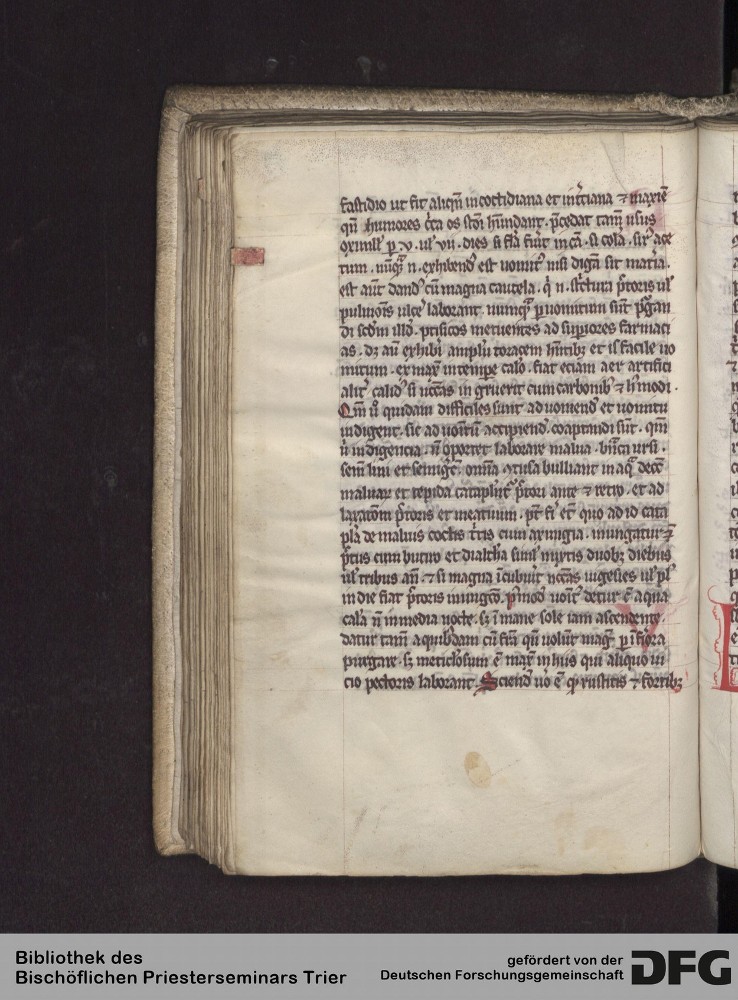 fastidio ut fit aliqm̄ in cotidiana et in t̄ciana ⁊ maxīe
qn̄ humores c̄ca os stōi h̄undant. p̄cedat tam̄ usus
oximell̕ p̱ .v. ul̕ .vii. dies si fla fiūt in ca. si cola. sir̕ ace
tum. nūq̄ n̄. exhibend̕ est uomit̕ nisi diga sit mat̄ia.
est aūt dand̕ cū magna cautela. q̇ n̄. p̄toris ul̕
pulmois ulce laborant. nunq̄ p̱ uomitum sūt p̱gan
di scd̄m illd̕. ptisicos metuentes ad sup̱iores farmaci
as. dꝫ aū exhib̕i amplū toracem hn̄tibꝫ et is facile uo
mitum. ex max̄ in tempe calo. fiat eciam aer artifici
alit̕ calid̕ si n̄ccās in gruerit cum carbonib̕ ⁊ h̕modi.
Qm̄ u̇ quidam difficiles sunt ad uomend̕ et uomitu
indigent. sic ad uoītū accipiend̕. coaptandi sūt. qm̄
u̇ indigencia. n̄ oportet laborare malua. bn̄ca ursi.
sem̄ lini et fenig̕c̄. om̄ia ꝯtusa bulliant in aq̄ decc̄
maluaꝝ et tepida cataplāt̕ p̄tori ante ⁊ retro. et ad
laxatōm p̄toris et meatuum. pt̄ fi et̄ quo ad id cata
pla de maluis coctis t̄tis cum axungia. inungatur
p̄tus cum butiro et dialthea simul mixtis duobꝫ diebus
ul̕ tribus an̄. ⁊ si magna īcubuit̕ n̄ccas uigesies ul̕ pl̕
in die fiat p̄toris inungcō. p̕mod̕ uoīt̕ detur c̄ aqua
cala n̄ in media nocte. sꝫ ī mane sole iam ascendente.
datur tam̄ a quibdam cū fra qn̄ uolūt mag̕ p̱ īfiora
purgare. sꝫ meticlosum ē max̄ in hiis qui aliquo ui
cio pectoris laborant. Sciend̕ uo ē ꝙ rusticis ⁊ fortibꝫ
Bibliothek des
Bischöflichen Priesterseminars Trier
gefördert von der
Deutschen Forschungsgemeinschaft
DFG